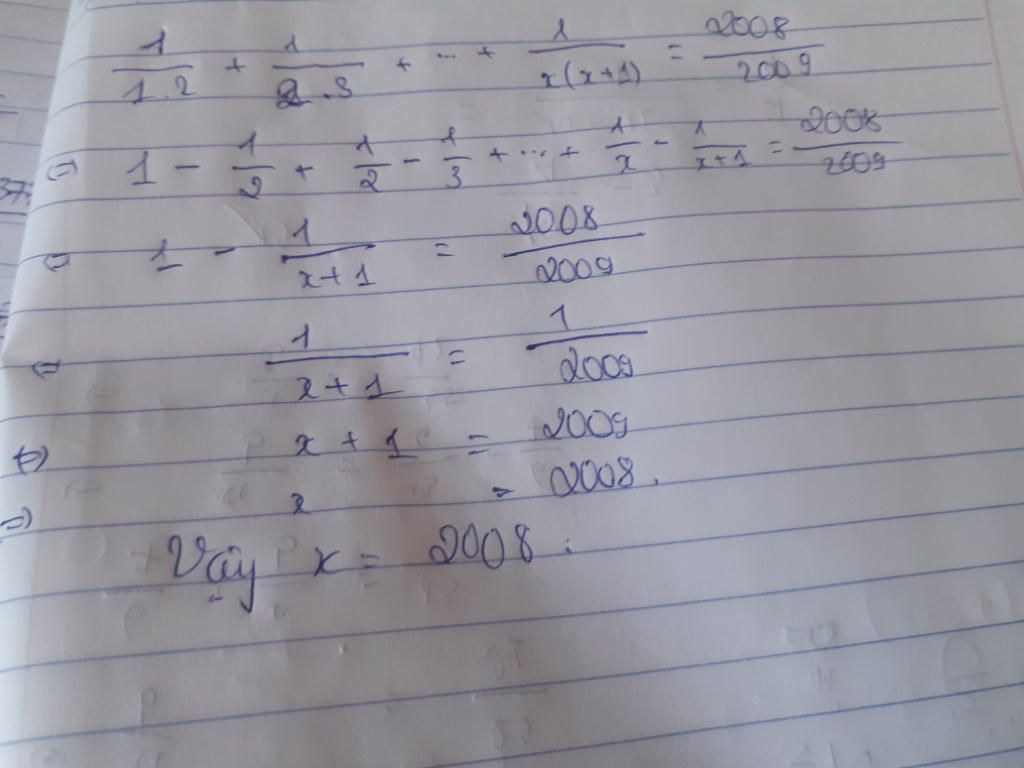 1/1.2 + 1/2.3 + ... + 1/x(x+1) = 2008/2009
(=) 1 - 1/2 + 1/2 - 1/3 + ... + 1/x - 1/x+1 = 2008/2009
(=) 1 - 1/x+1 = 2008/2009
(=) 1/x+1 = 1/2009
(=) x + 1 = 2009
(=) x = 2008.
Vậy x = 2008.